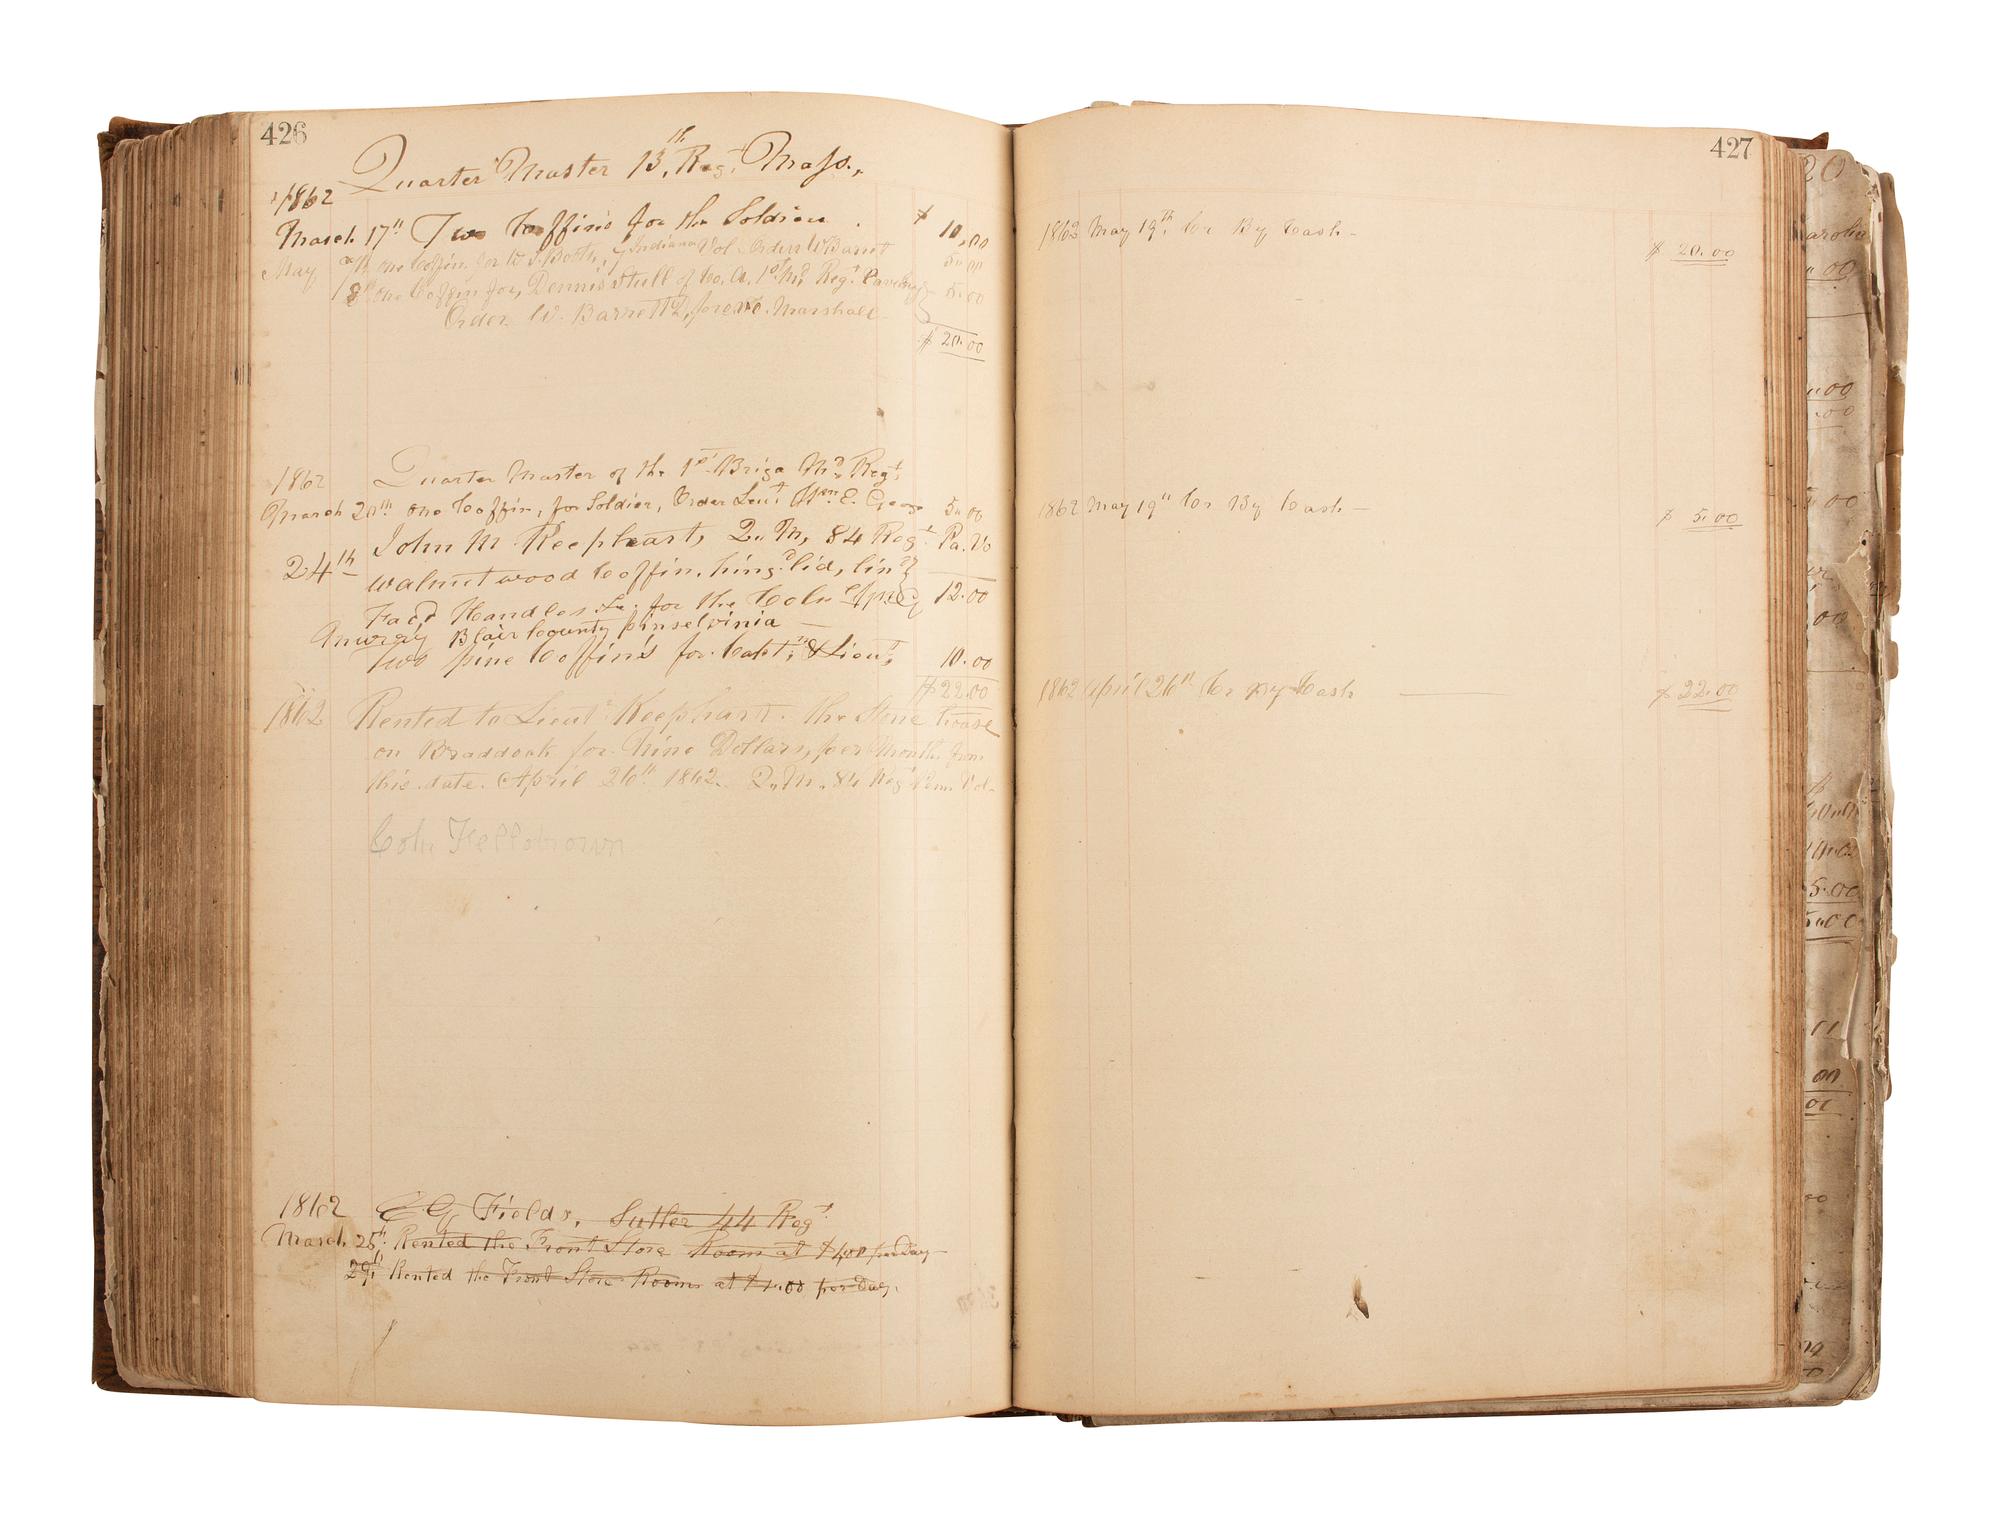 426
Quarter Master 13th, Regt. Mass.,
1862
March 17" Two Coffins for the Soldiers $ 10,00
May one Coffin for W. S. Booth, Indiana Vol. Order W Barnit 5,,00
18th one Coffin for, Dennis Stull of Co. A. 1st Md Regt 5.00
Order W. Barnett Marshall
$ 20.00
1862 Quarter Master of the 1st Briga Md Regt
March 20th one Coffin, for Soldier, Order Lieut Wm E. George 5,,00
John M Keephart, Q. M, 84 Regt Pa. Vo
24th walnut wood Coffin. hingd lid, lind
Facd Handles &c. for the Coln 12.00
Murray Blair County pinselvinia —
Two pine Coffins for Capt, & Lieut, 10.00
$22.00
1862 Rented to Lieut Keephart. the Stone house
on Braddock for Nine Dollars, per Month from
this date. April 26th 1862. Q. M. 84 Regt Penn Vol.
Coln
1862 E G Fields, Sutler 44 Regt
March 25th, Rented the Front Store Room at per Day
29th, Rented the Front Store Room at per Day.
427
1862 May 19th. Cr By Cash - $ 20.00
1862 May 19th Cr By Cash — $ 5.00
1862 April 26th Cr By Cash — $ 22.00
20